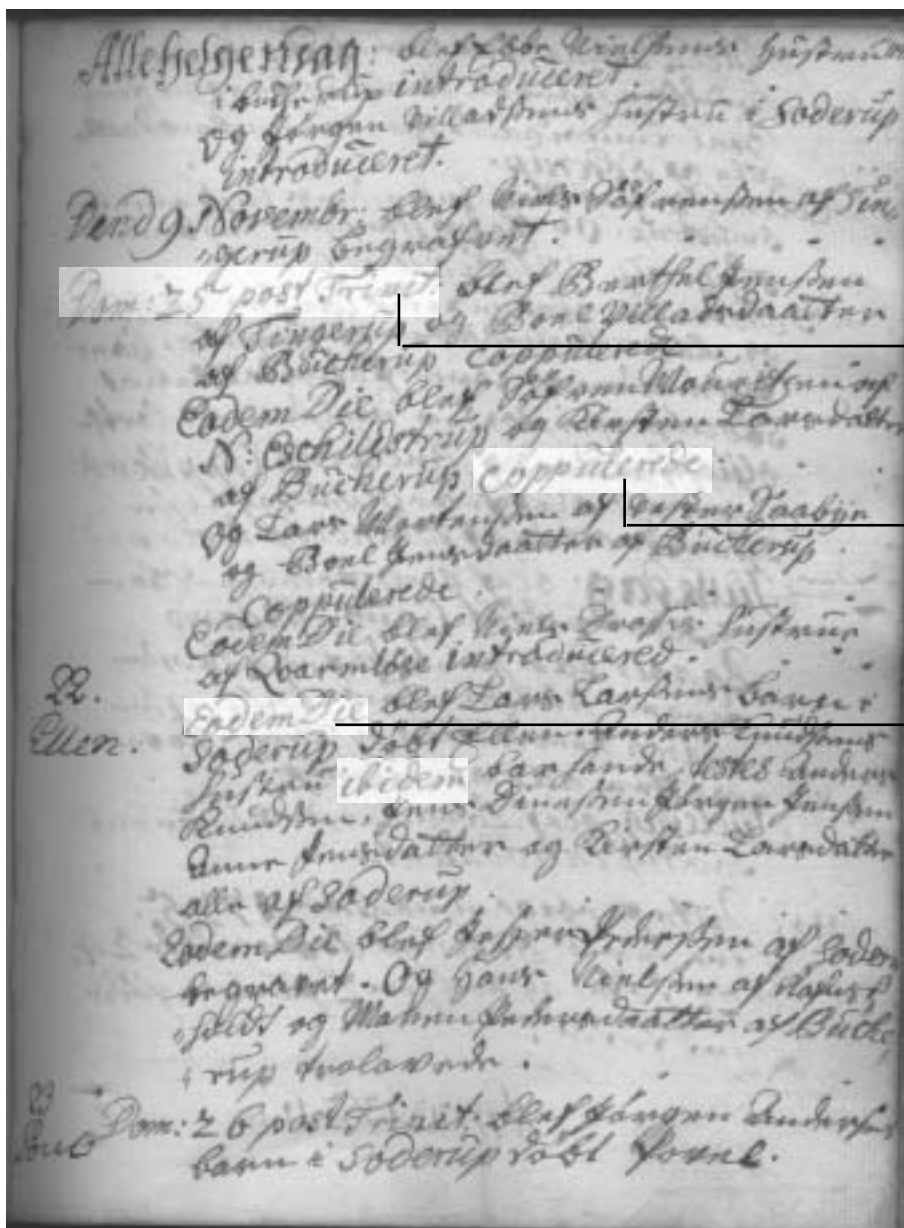 Allehelgensdag: blef Ebbe Nielsens Hustrue
i Bucherup introduceret.
og Jørgen Villadsens Hustru i Soderup
introduceret.
Dend 9 Novembr: blef Niels Søfrensen af Tin,
gerup begrafvet.
Dom: 25 post Trinit: blef Berthel Jensen
af Tingerup og Boel Villadsdaatter
af Bucherup Coppulerede.
Eodem Die blef Søfren Mouritsen af
N: Eschilstrup og Kirsten Larsdatter
af Bucherup Coppulerede.
Og Lars Mortensen af Vester Saabye
og Boel Jensdaatter af Bucherup
Coppulerede.
Eodem Die blef Niels Hustrue
af Qvarmløse introducered.
22. Eodem Die blef Lars Larsens barn i
Ellen. Soderup døbt Ellen. Anders Knudsens
Hustru ibidem bar hende, testes Anders
Knudsen, Jens Jørgen Jensen
Anne Jensdatter og Kirsten Larsdatter
alle af Soderup.
Eodem Die blef Jesper Pedersen af Soder
begravet. Og Hans Nielsen af
og Maren Pedersdaatter af Buche,
rup trolovede.
23 Dom: 26 post Trinit: blef Jørgen Anders
barn i Soderup døbt Povel.